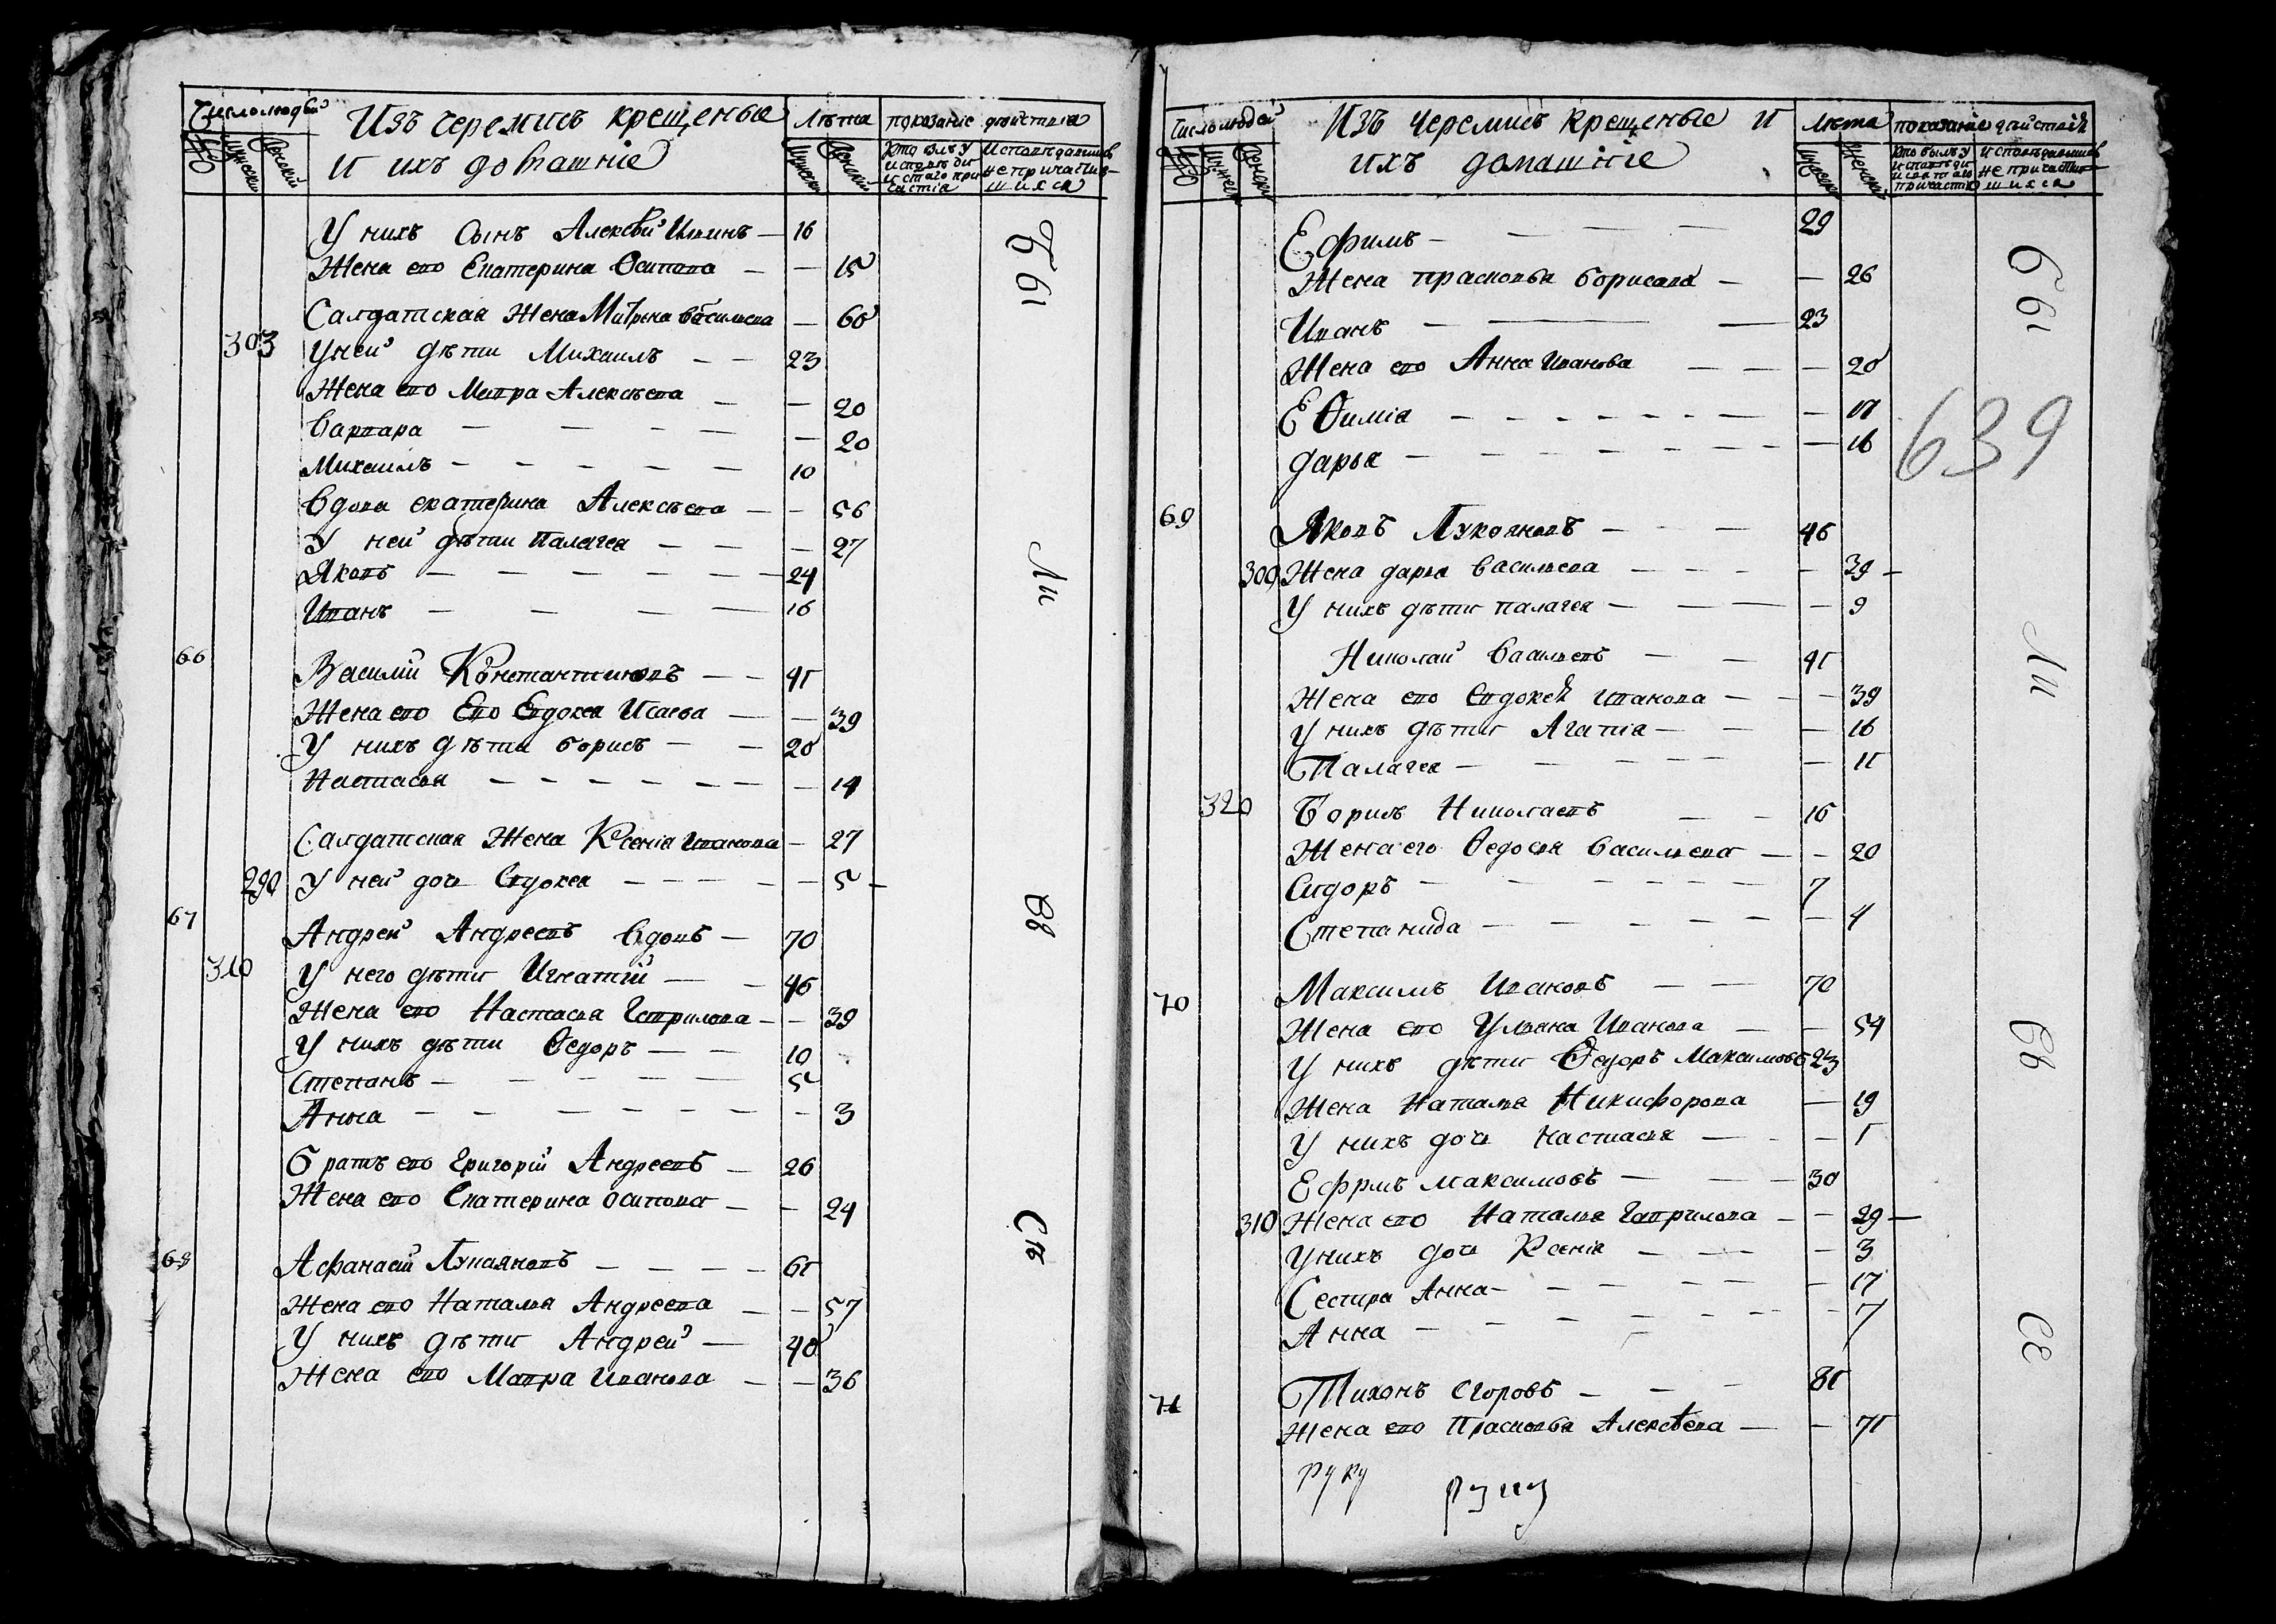 Число людей
Изъ черемисъ крещеные
Лѣта
показание действия
И ихъ домашнie
кто былъ у исповѣди и стаго причастiя
Исповѣдавшихся не причастившихся
У нихъ Сынъ Алексѣй Ивинъ — 16
Жена ево Екатерина Осипова — — 15
Салдатская Жена Матрена Васильева — 60
303 У ней дѣти Михаилъ — — 23
Жена ево Мавра Алексѣева — — 20
Варвара — — — — — 20
Михаилъ — — — — — 10
Вдова екатерина Алексѣева — — 56
У ней дѣти Палагея — — — 27
Яковъ — — — — — — 24
Иванъ — — — — 16
66 Василий Константиновъ — — 41
Жена ево Ево Евдокея Исаева — — 39
У нихъ дѣти борисъ — — 20
Настасья — — — — — — — 14
Салдатская Жена Ксенiя Иванова — 27
290 У ней дочь Евдокея — — — — — 5 —
67 Андрей Андреевъ Вдовъ — 70
310 У него дѣти Игнатiй — — 46
Жена ево Настасья Гаврилова — — 39
У нихъ дѣти Ѳедоръ — — 10
Степанъ — — — — — 5
Анна — — — — — — — — 3
братъ ево григорiй Андреевъ — 26
Жена ево Екатерина осипова — — 24
68 Афанасiй Лукаяновъ — — — — 61
Жена ево Наталья Андреева — — 57
У нихъ дѣти Андрей — 40
Жена ево Мавра Иванова — — 36
Бы
Ли
Вь
Съ
Число людей
Изъ черемисъ крещеные и
Лѣта
показанiе действiя
ихъ домашнiе
кто былъ у исповѣди и святаго причастiя
исповѣдавшихся не причастившихся
Ефимъ — — — — 29
Жена прасковья борисова — — 26
Иванъ — — — 23
Жена ево Анна Иванова — — — 20
Еѳимiя — — — — — — — — 17
дарья — — — — — — — — 16
639
69 Яковъ Лукояновъ — — — 46
300 Жена дарья васильева — — — — — 39 —
У нихъ дѣти палагея — — — — 9
Николай Васильевъ — — 41
Жена ево Евдокея иванова — — — 39
У нихъ дѣти Агапiя — — — 16
Палагея — — — — — — 11
320 Борисъ Николаевъ — — 16
Жена его Ѳедосья Васильева — — 20
Сидоръ — — — — — — 7
Степанида — — — — — — 4
70 Максимъ Ивановъ — — 70
Жена ево Ульяна Иванова — — 54
У нихъ дѣти Ѳедоръ Максимовъ 23
Жена Наталья Никифорова — 19
У нихъ дочь Настасья — — — 1
Ефримъ Максимовъ — — — 30
310 Жена ево Наталья Гаврилова — — 29 —
У нихъ дочь Ксенiя — — — — 3
Сестра Анна — — — — — — 17
Анна — — — — — — 7
71 Тихонъ Егоровъ — — — 81
Жена ево Прасковья Алексѣева — — 71
руку
руку
бы
Ли
Вь
Се